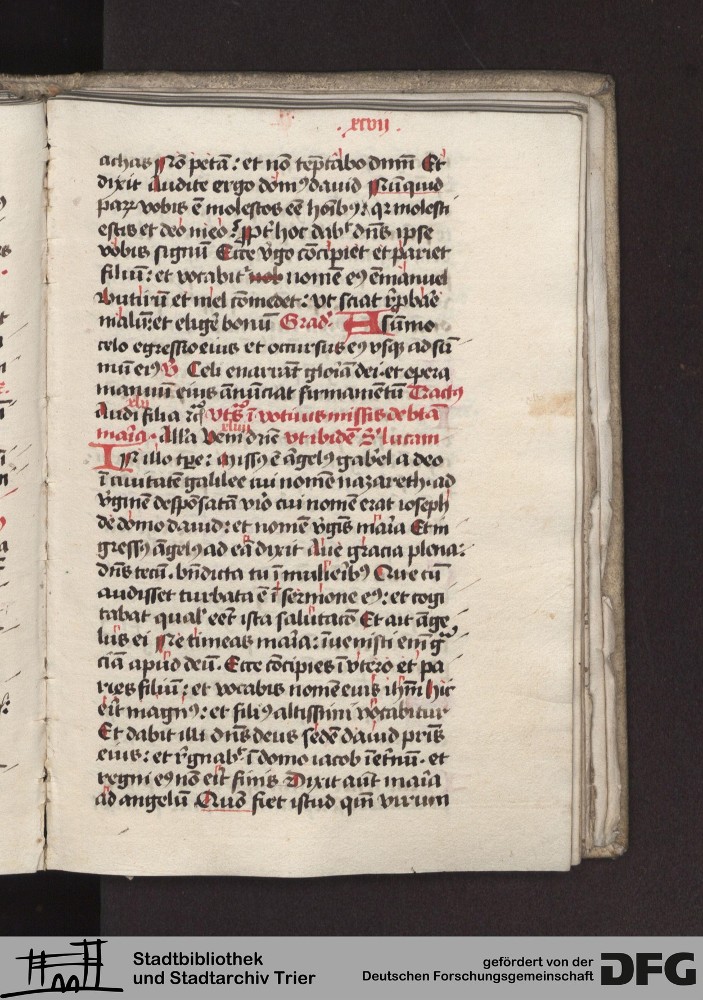 . xcvii .
achas Nō petā : et nō tēptabo dnm̄ Et
dixit Audite ergo domꝰ dauid Nūquid
parꝝ vobis ē molestos eē hoībꝰ : qꝛ molesti
estis et deo meo ꝓpt̄ hoc dabᵗ dn̄s ipse
vobis signū Ecce v̓go cōcipiet et pariet
filiū : et vocabitᵘʳ nomē eꝰ emanuel
Butirū et mel cōmedet : vt sciat r̓pbaē
malū : et elige̓ bonū Grad. A sūmo
celo egressio eius et occursus eꝰ vsqꝫ ad sū
mū eiꝰ v̓ Celi enarrāt gloīa dei . et opera
manuū eius ānūciat firmamentū Tractꝰ
xlvi
Audi filia rq̓ vts̓ ī votiuis missis de btā
xliiii
maīa . Alla Veni dn̄e vt ibidē S̓ lucam
In illo tpe : Missꝰ ē āgelꝰ gabrel a deo
ī ciuitatē galilee cui nomē nazareth . ad
v̓gīnē desponsatā viro cui nomē erat ioseph
de domo dauid : et nomē v̓gīs maīa Et in
gressꝰ āgelꝰ ad eā dixit Aue gracia plena :
dn̄s tecū . bn̄dicta tu ī mulierībꝰ Que cū
audisset turbata ē ī sermone eꝰ : et cogi
tabat qualᵗ eēt ista salutacō Et ait āge
lus ei Ne timeas maīa : īuenisti eīm gᵃ
ciā apud deū . Ecce cōcipies ī vtero et pa
ries filiū : et vocabis nomē euis ihm̄ hic
eīt magnꝰ : et filiꝰ altissimi vocabitur
Et dabit illi dn̄s deus sedē dauid pr̄is
eius : et r̓gnabᵗ ī domo iacob ī et̓nū . et
regni eꝰ nō eīt finis Dixit aūt maīa
ad angelū Quō fiet istud qm̄ virum
Stadtbibliothek
und Stadtarchiv Trier
gefördert von der
Deutschen Forschungsgemeinschaft
DFG